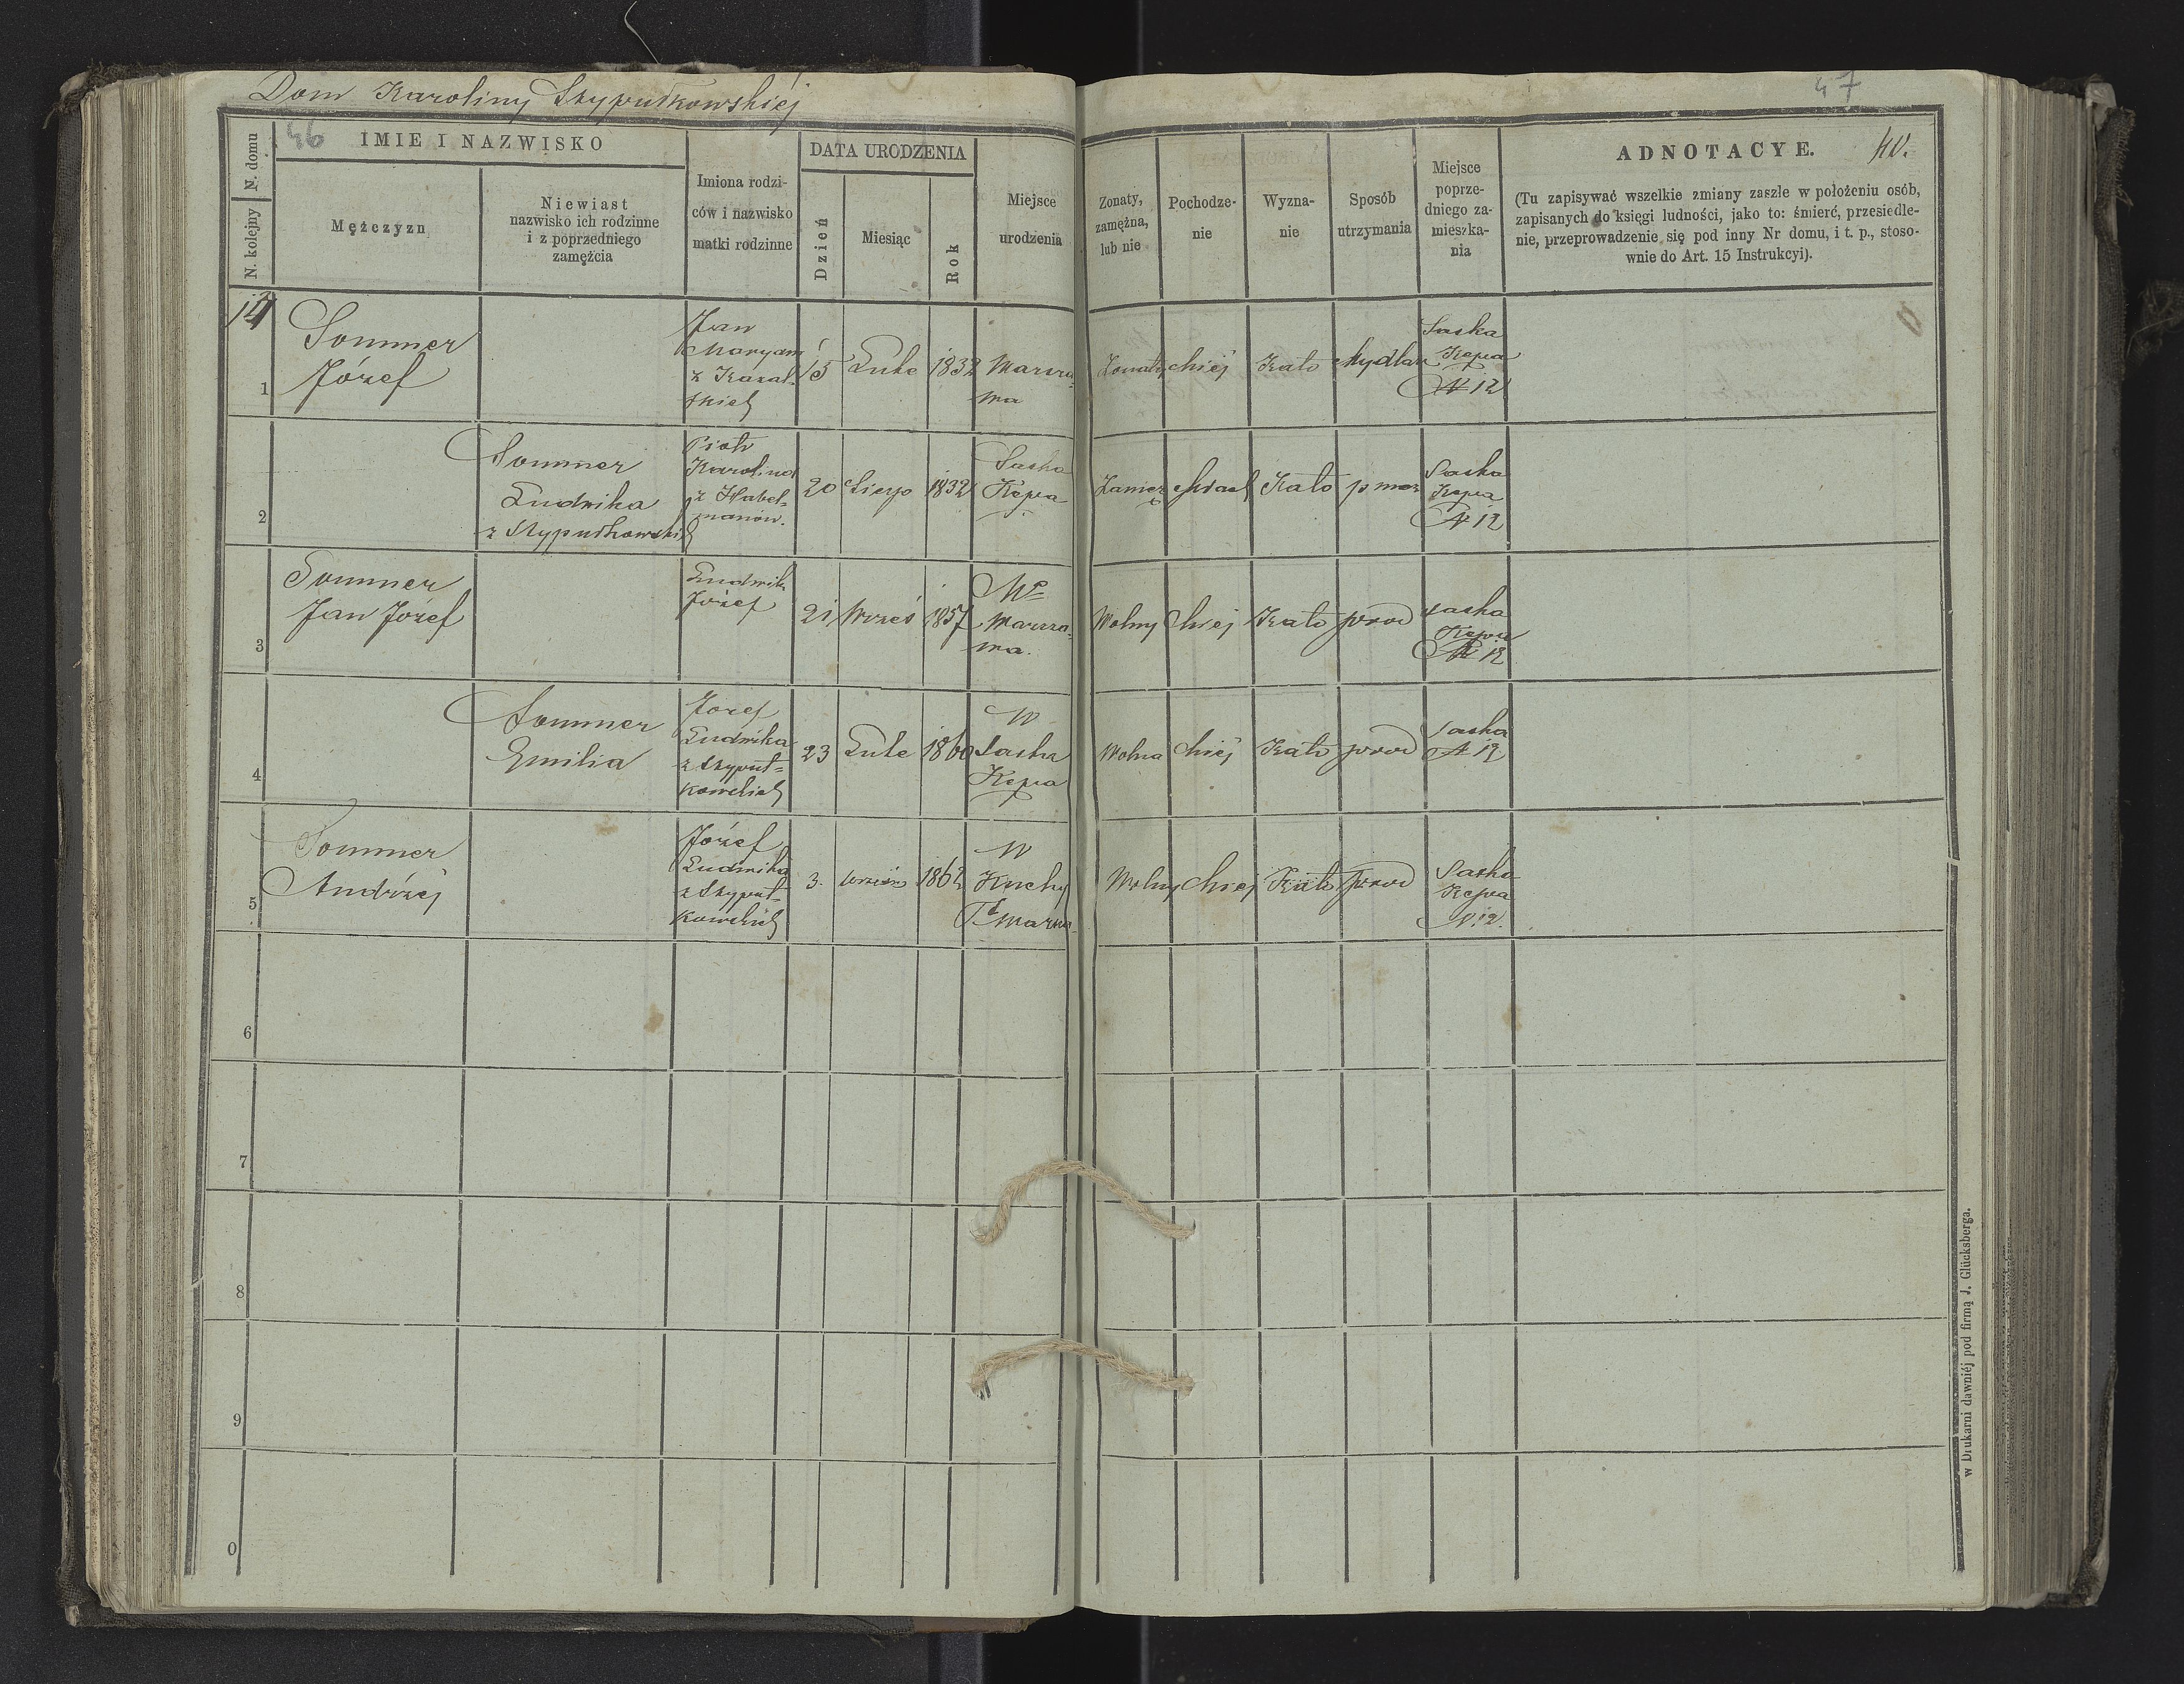 Dom Karoliny Skypułkowskiéj
46
47
N. domu
N. kolejny
IMIE I NAZWISKO
Mężczyzn
Niewiast
nazwisko ich rodzinne
i z poprzedniego
zamęźcia
Imiona rodzi-
ców i nazwisko
matki rodzinne
DATA URODZENIA
Dzień
Miesiąc
Rok
Miejsce
urodzenia
Zonaty,
zamężna,
lub nie
Pochodze-
nie
Wyzna-
nie
Sposób
utrzymania
Miejsce
poprze-
dniego za-
mieszka-
nia
ADNOTACYE.
40.
(Tu zapisywać wszelkie zmiany zaszłe w położeniu osób,
zapisanych do księgi ludności, jako to: śmierć, przesiedle-
nie, przeprowadzenie się pod inny Nr domu, i t. p., stoso-
wnie do Art. 15 Instrukcyi).
1
Sommer
Józef
Jan
Maryan
15
Lute
1832
Warsza-
wa
Zonaty
chiéj
Kato
Mydlar
Saska
Kępa
N 12
2
Sommer
Ludwika
z Skypułkowskich
Piotr
Karolina
z Habel-
manów.
20
Sierp
1832
Saska
Kępa
Zamęz
Kato
p męz
Saska
Kępa
N 12
3
Sommer
Jan Józef
Ludwik
Józef
21
Wrześ
1857
Warsza-
wa.
Wolny
chiej
Kato
Saska
Kępa
N 12
4
Sommer
Emilia
Józef
Ludwika
z Skypuł-
kowskich
23
Lute
1860
W
Saska
Kępa
Wolna
chiéj
Kato
Saska
N 12
5
Sommer
Andrzéj
Józef
Ludwika
z Skypuł-
kowskich
3.
wrzesień
1862
W
Wolny
chiej
Kato
Saska
Kępa
N 12.
6
7
8
9
0
w Drukarni dawniéj pod firmą J. Glücksberga.